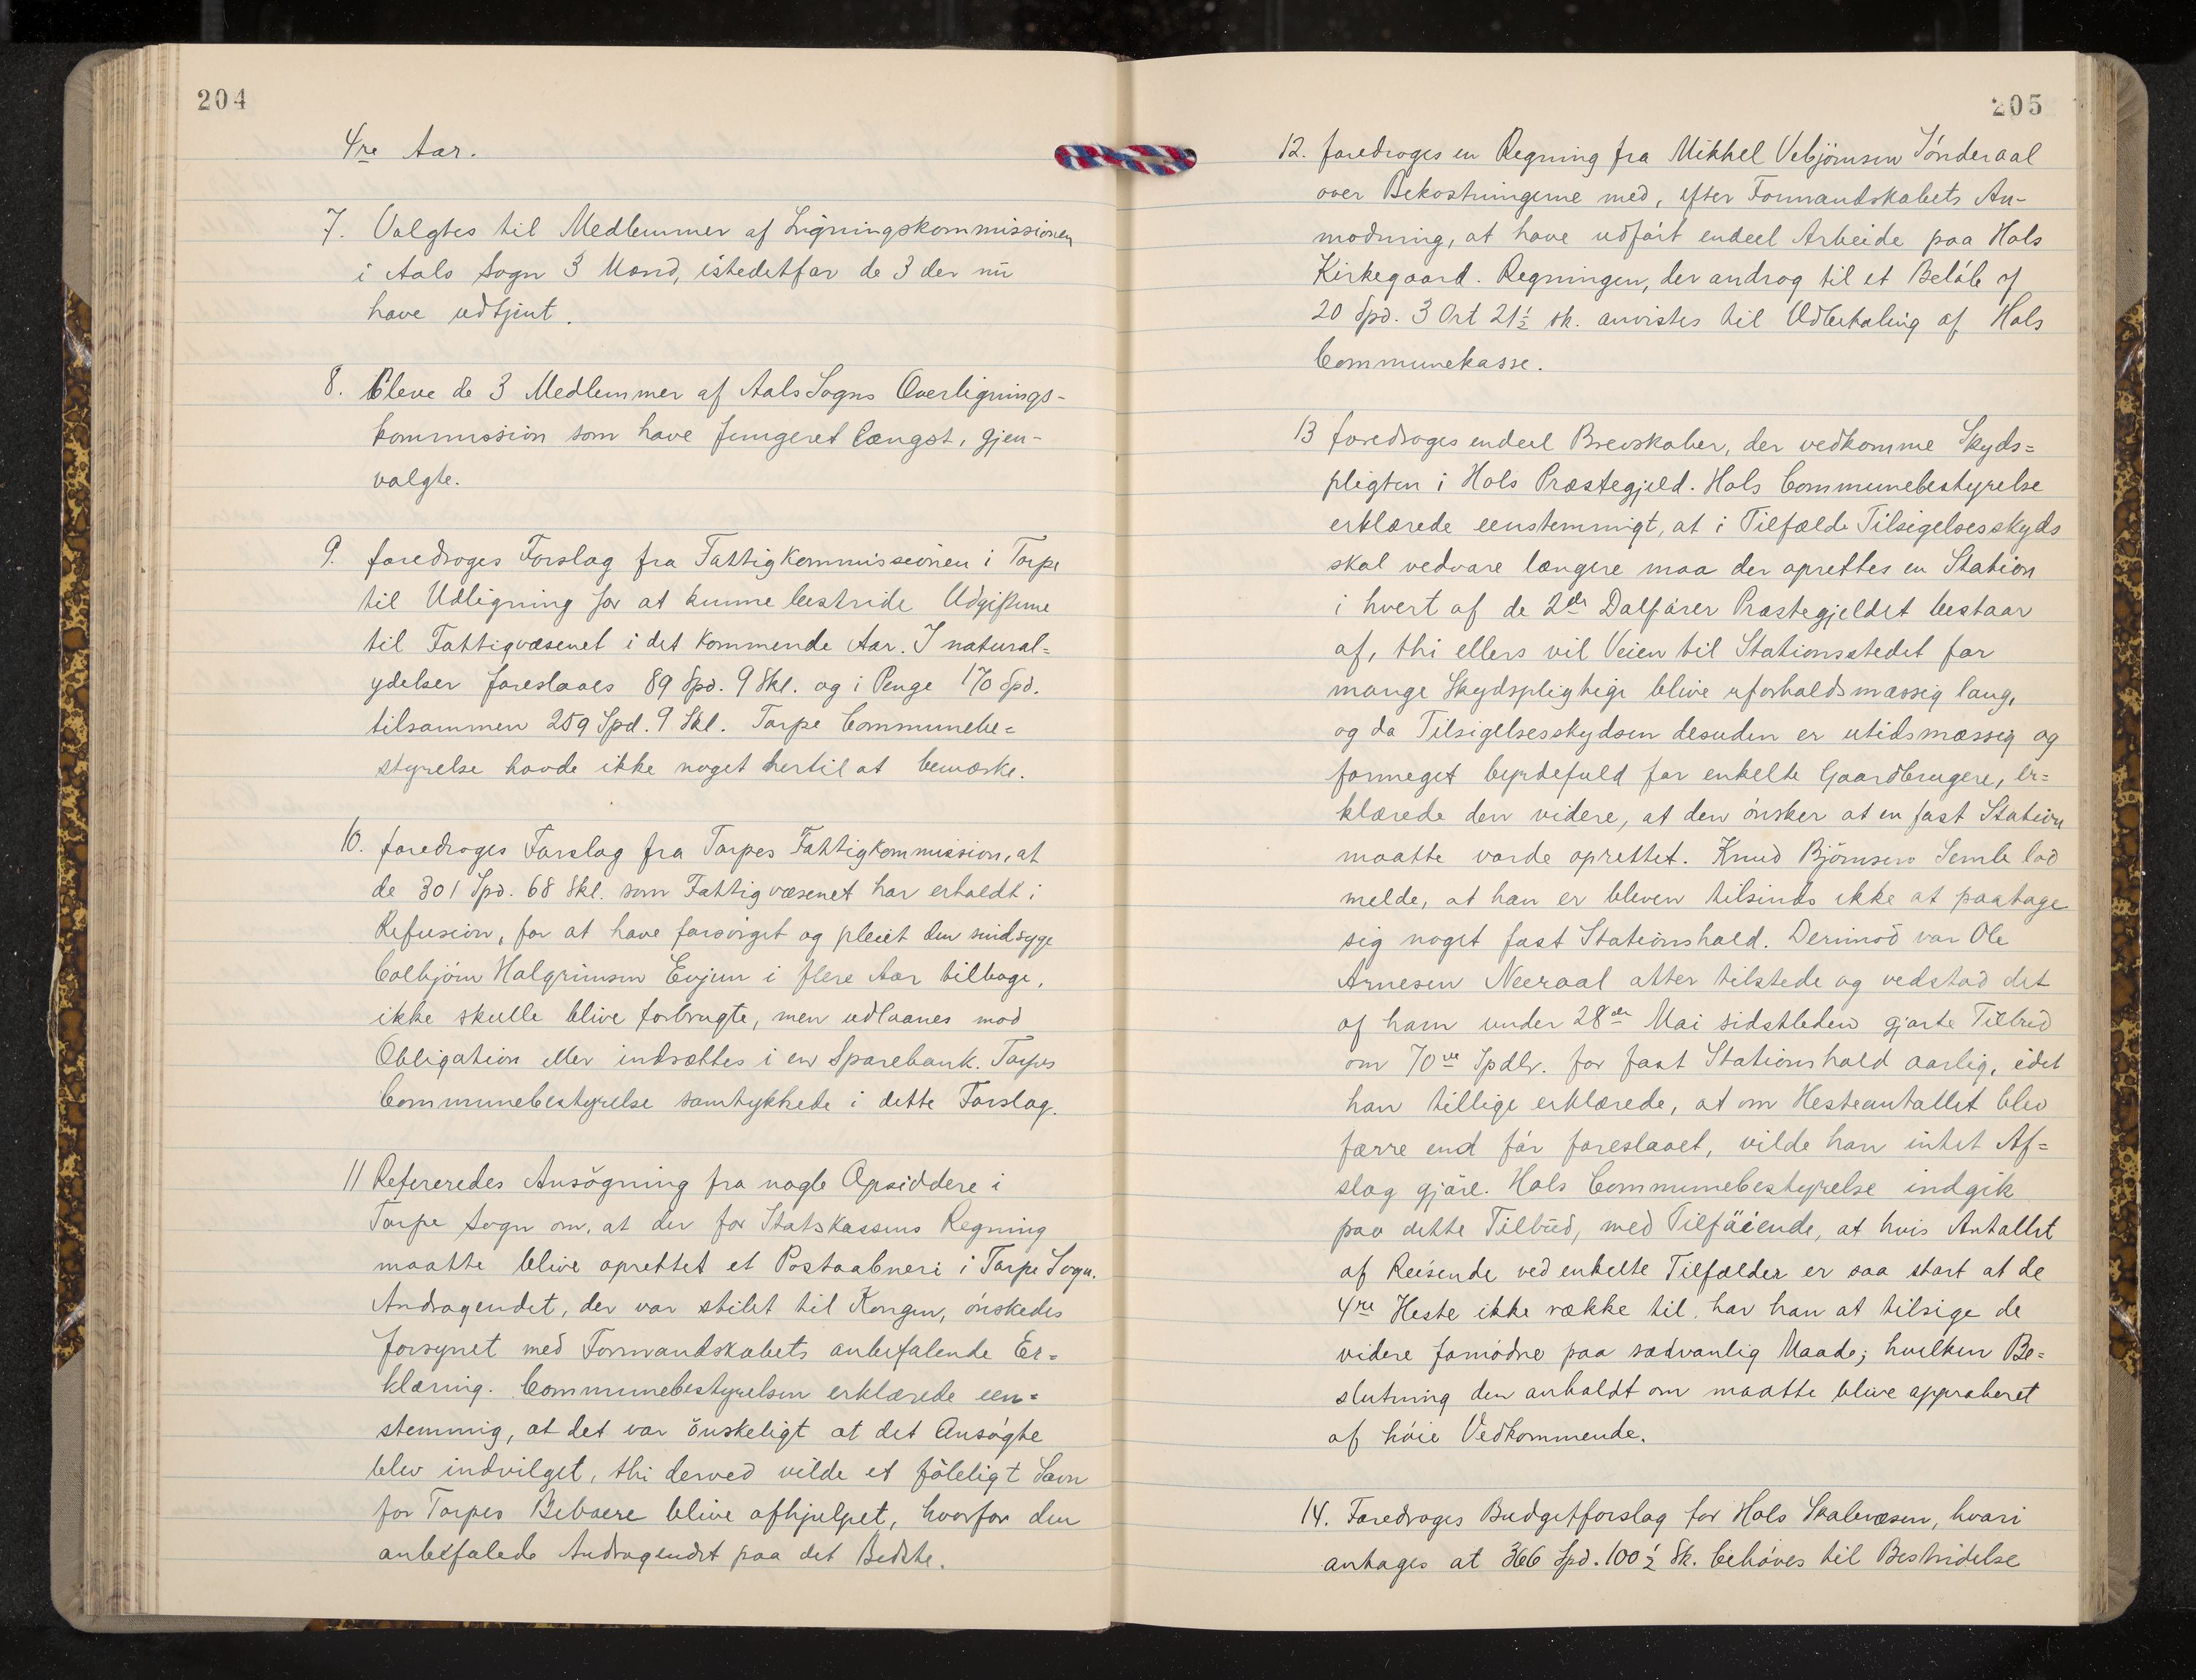 204
4re Aar.
7. Valgtes til Medlemmer af Ligningskommissionen
i Aals Sogn 3 Mænd, istedetfor de 3 der nu
have udtjent.
8. Bleve de 3 Medlemmer af Aals Sogns Overlignings-
kommission som have fungeret længst, gjen-
valgte.
9. foredroges Forslag fra Fattigkommissionen i Torpe
til Udligning for at kunne bestride Udgifterne
til Fattigvæsenet i det kommende Aar. I natural=
ydelser foreslaaes 89 Spd. 9 Skl. og i Penge 170 Spd.
tilsammen 259 Spd. 9 Skl. Torpe Communebe=
styrelse havde ikke noget hertil at bemærke.
10. foredroges Forslag fra Torpes Fattigkommission, at
de 301 Spd. 68 Skl. som Fattigvæsenet har erholdt i
Refusion, for at have forsørget og pleiet den sindsyge
Colbjörn Halgrimsen Evjen i flere Aar tilbage,
ikke skulle blive forbrugte, men udlaanes mod
Obligation eller indsættes i en Sparebank. Torpes
Communebestyrelse samtykkede i dette Forslag.
11 Refereredes Ansøgning fra nogle Opsiddere i
Torpe Sogn om, at der for Statskassens Regning
maatte blive oprettet et Postaabneri i Torpe Sogn.
Andragendet, der var stilet til Kongen, ønskedes
forsynet med Formandskabets anbefalende Er=
klæring. Communebestyrelsen erklærede een=
stemmig, at det var ønskeligt at det Ansøgte
blev indvilget, thi derved vilde et føleligt Savn
for Torpes Beboere blive afhjulpet, hvorfor den
anbefalede Andragendet paa det Bedste.
205
12. foredroges en Regning fra Mikkel Vebjörnsen Sønderaal
over Bekostningerne med, efter Formandskabets An-
modning, at have udført endeel Arbeide paa Hols
Kirkegaard. Regningen, der androg til et Beløb af
20 Spd. 3 Ort 21½ sk. anvistes til Udbetaling af Hols
Communekasse.
13 foredroges endeel Brevskaber, der vedkomme Skyds=
pligten i Hols Præstegjeld. Hols Communebestyrelse
erklærede eenstemmigt, at i Tilfælde Tilsigelsesskyds
skal vedvare længere maa der oprettes en Station
i hvert af de 2de Dalfører Præstegjeldet bestaar
af, thi ellers vil Veien til Stationsstedet for
mange Skydspligtige blive uforholdsmæssig lang,
og da Tilsigelsesskydsen desuden er utidsmæssig og
formeget byrdefuld for enkelte Gaardbrugere, er=
klærede den videre, at den ønsker at en fast Station
maatte vorde oprettet. Knud Björnsen Semle lod
melde, at han er bleven tilsinds ikke at paatage
sig noget fast Stationshold. Derimod var Ole
Arnesen Neeraal atter tilstede og vedstod det
af ham under 28de Mai sidstleden gjorte Tilbud
om 70ve Spdlr. for fast Stationshold aarlig, idet
han tillige erklærede, at om Hesteantallet blev
færre end før foreslaaet, vilde han intet Af=
slag gjøre. Hols Communebestyrelse indgik
paa dette Tilbud, med Tilføiende, at hvis Antallet
af Reisende ved enkelte Tilfælder er saa stort at de
4re Heste ikke række til, har han at tilsige de
videre fornødne paa sædvanlig Maade; hvilken Be=
slutning den anholdt om maatte blive approberet
af høie Vedkommende.
14. Foredroges Budgetforslag for Hols Skolevæsen, hvori
antages at 366 Spd. 100½ Sk. behøves til Bestridelse